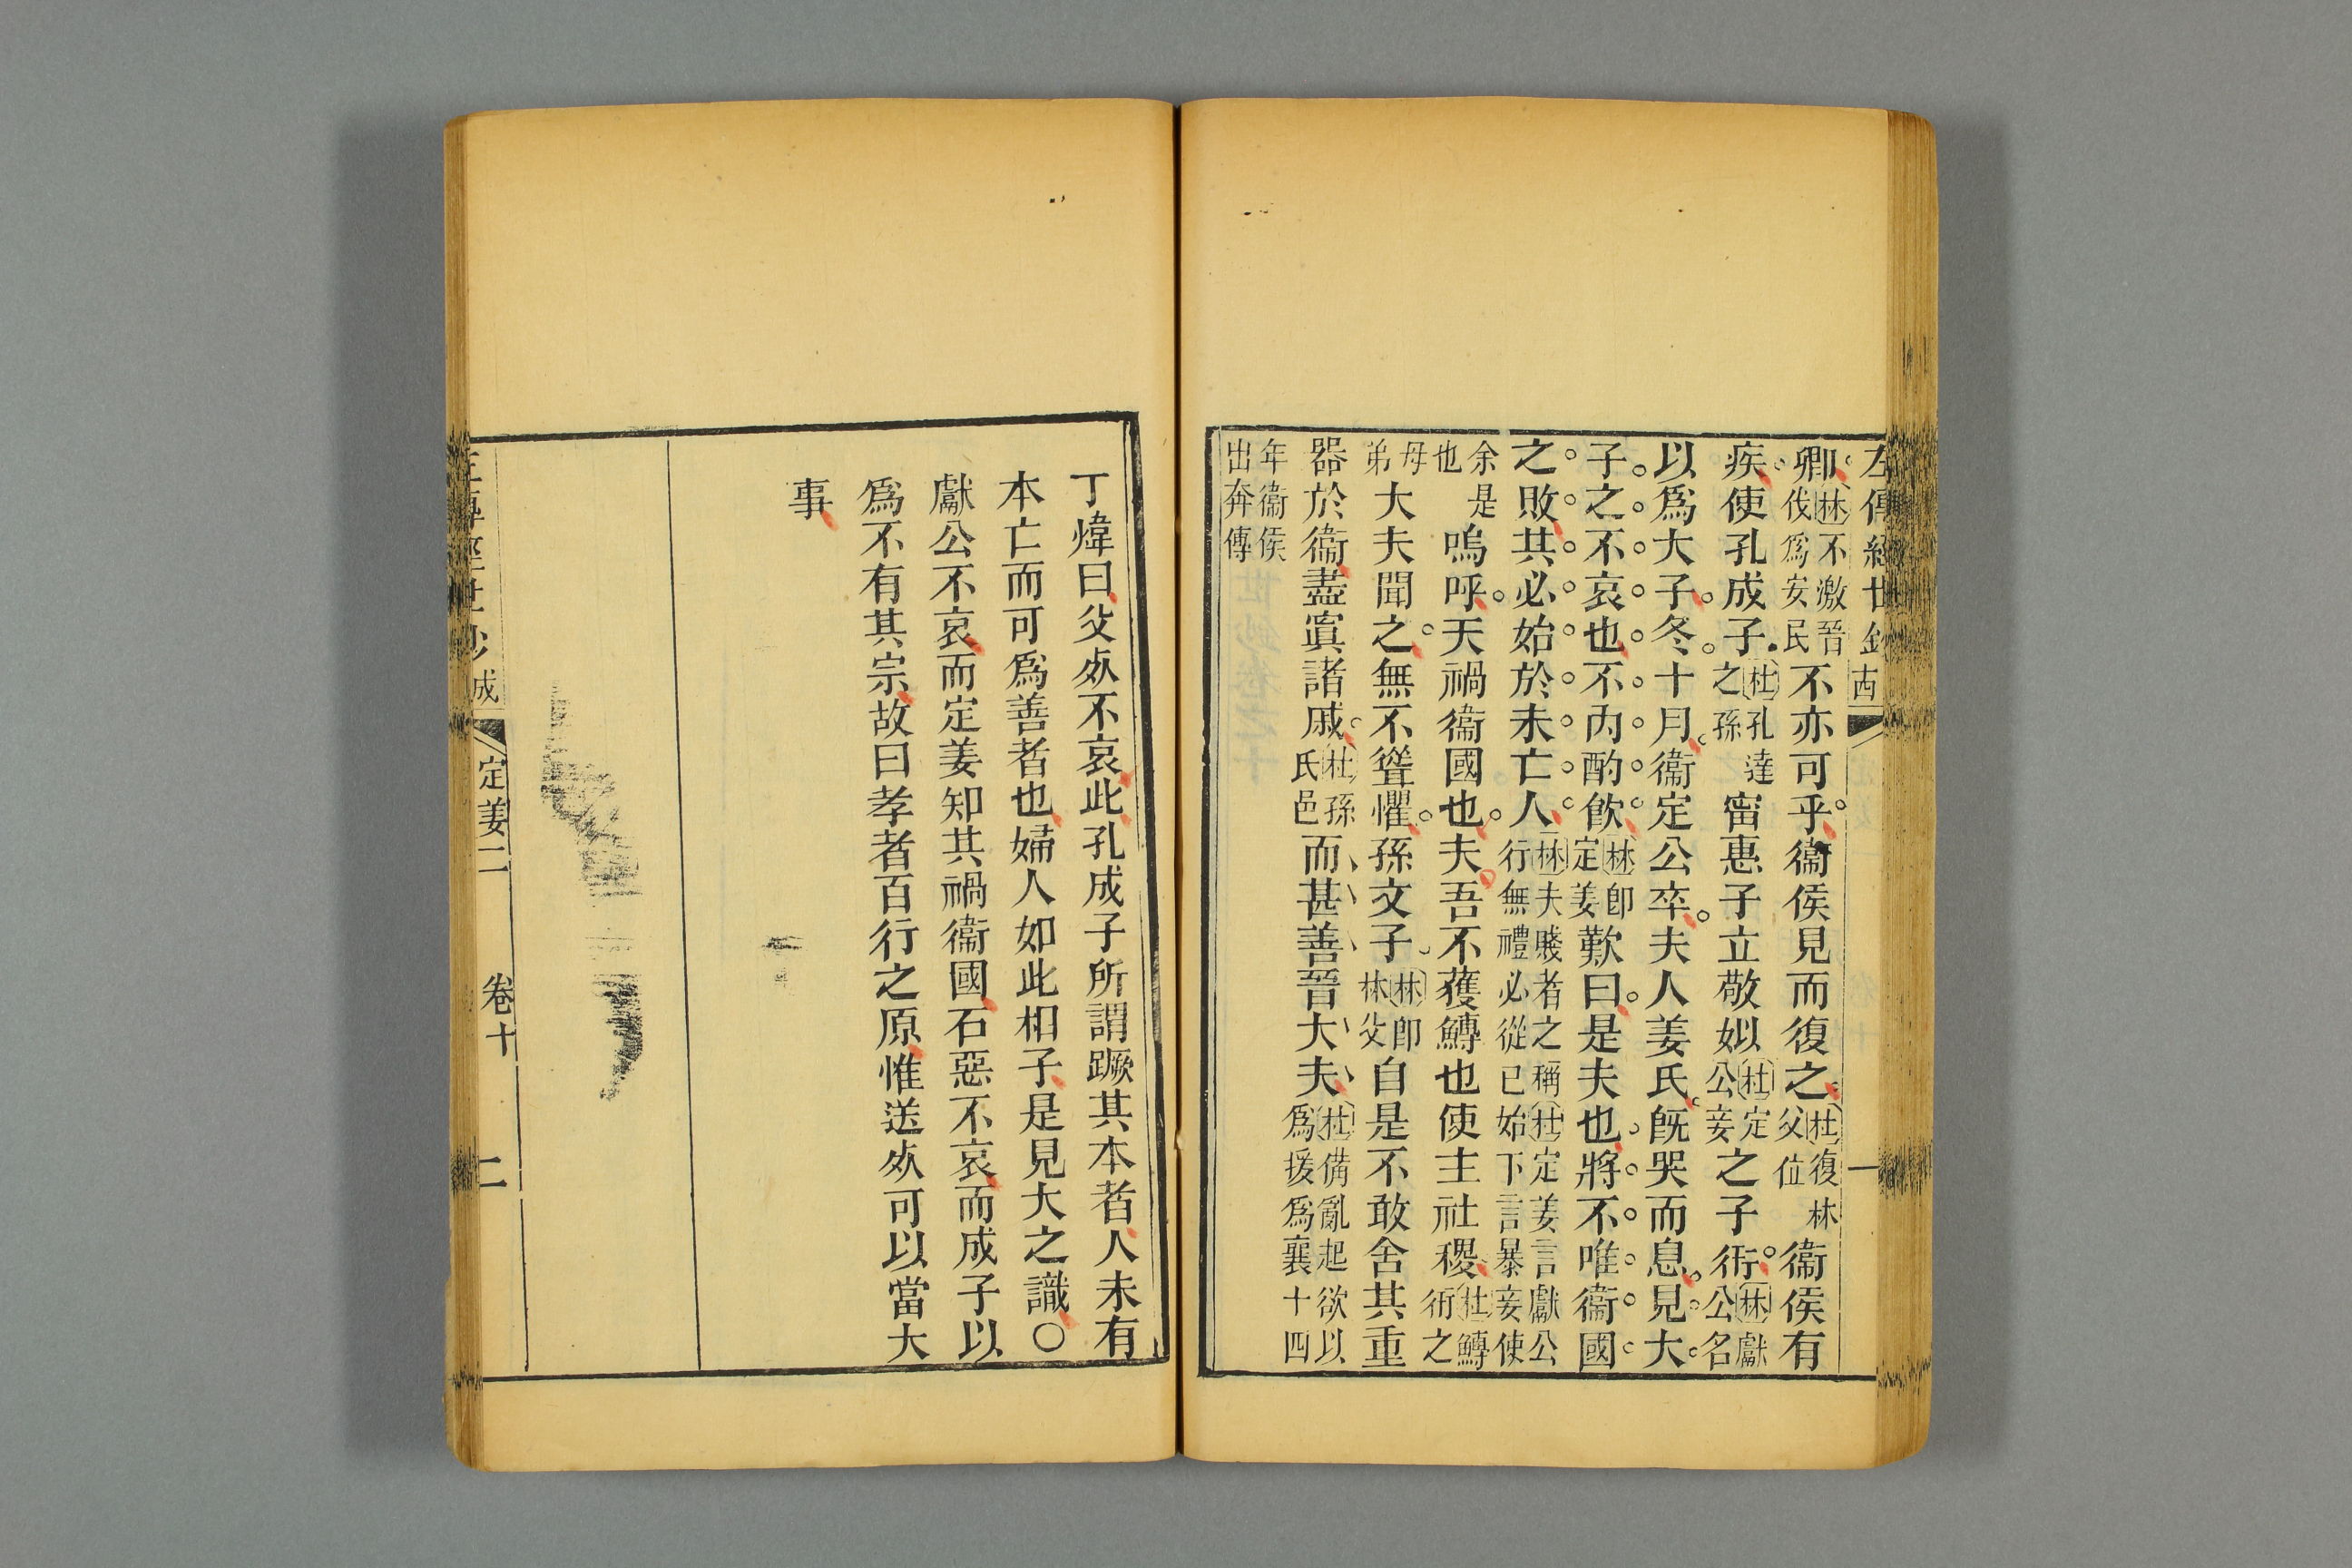 左傳經世鈔
卿林不激晉伐爲安民不亦可乎衞侯見而復之杜復林父位衞侯有
疾使孔成子杜孔達之孫甯惠子立敬姒杜定公妾之子衎林獻公名
以爲大子冬十月衞定公卒夫人姜氏旣哭而息見大
子之不哀也不內酌飮林卽定姜歎曰是夫也將不唯衞國
之敗其必始於未亡人林夫賤者之稱杜定姜言獻公行無禮必從已始下言暴妾使
余是也嗚呼天禍衞國也夫吾不獲鱄也使主社稷杜鱄衎之
母弟大夫聞之無不聳懼孫文子林卽林父自是不敢舍其重
器於衞盡寘諸戚杜孫氏邑而甚善晉大夫杜備亂起欲以爲援爲襄十四
年衞侯出奔傳
丁煒曰父死不哀此孔成子所謂蹶其本者人未有
本亡而可爲善者也婦人如此相子是見大之識〇
獻公不哀而定姜知其禍衞國石惡不哀而成子以
爲不有其宗故曰孝者百行之原惟送死可以當大
事
左傳經世鈔 成 定姜二 卷十 二